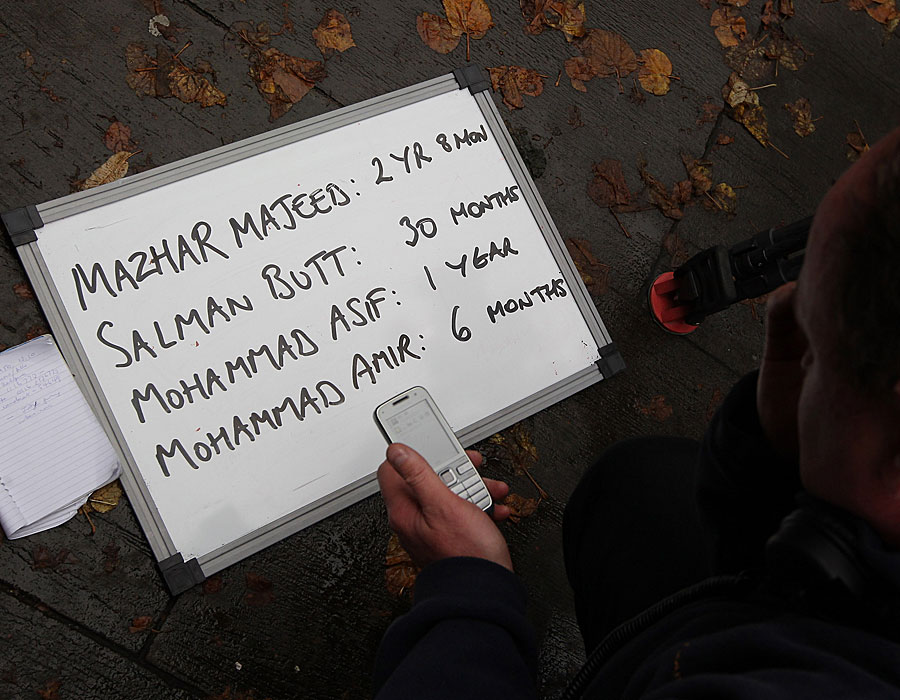 MAZHAR MAJEED: 2 YR 8 MON
SALMAN BUTT: 30 MONTHS
MOHAMMAD ASIF: 1 YEAR
MOHAMMAD AMIR: 6 MONTHS